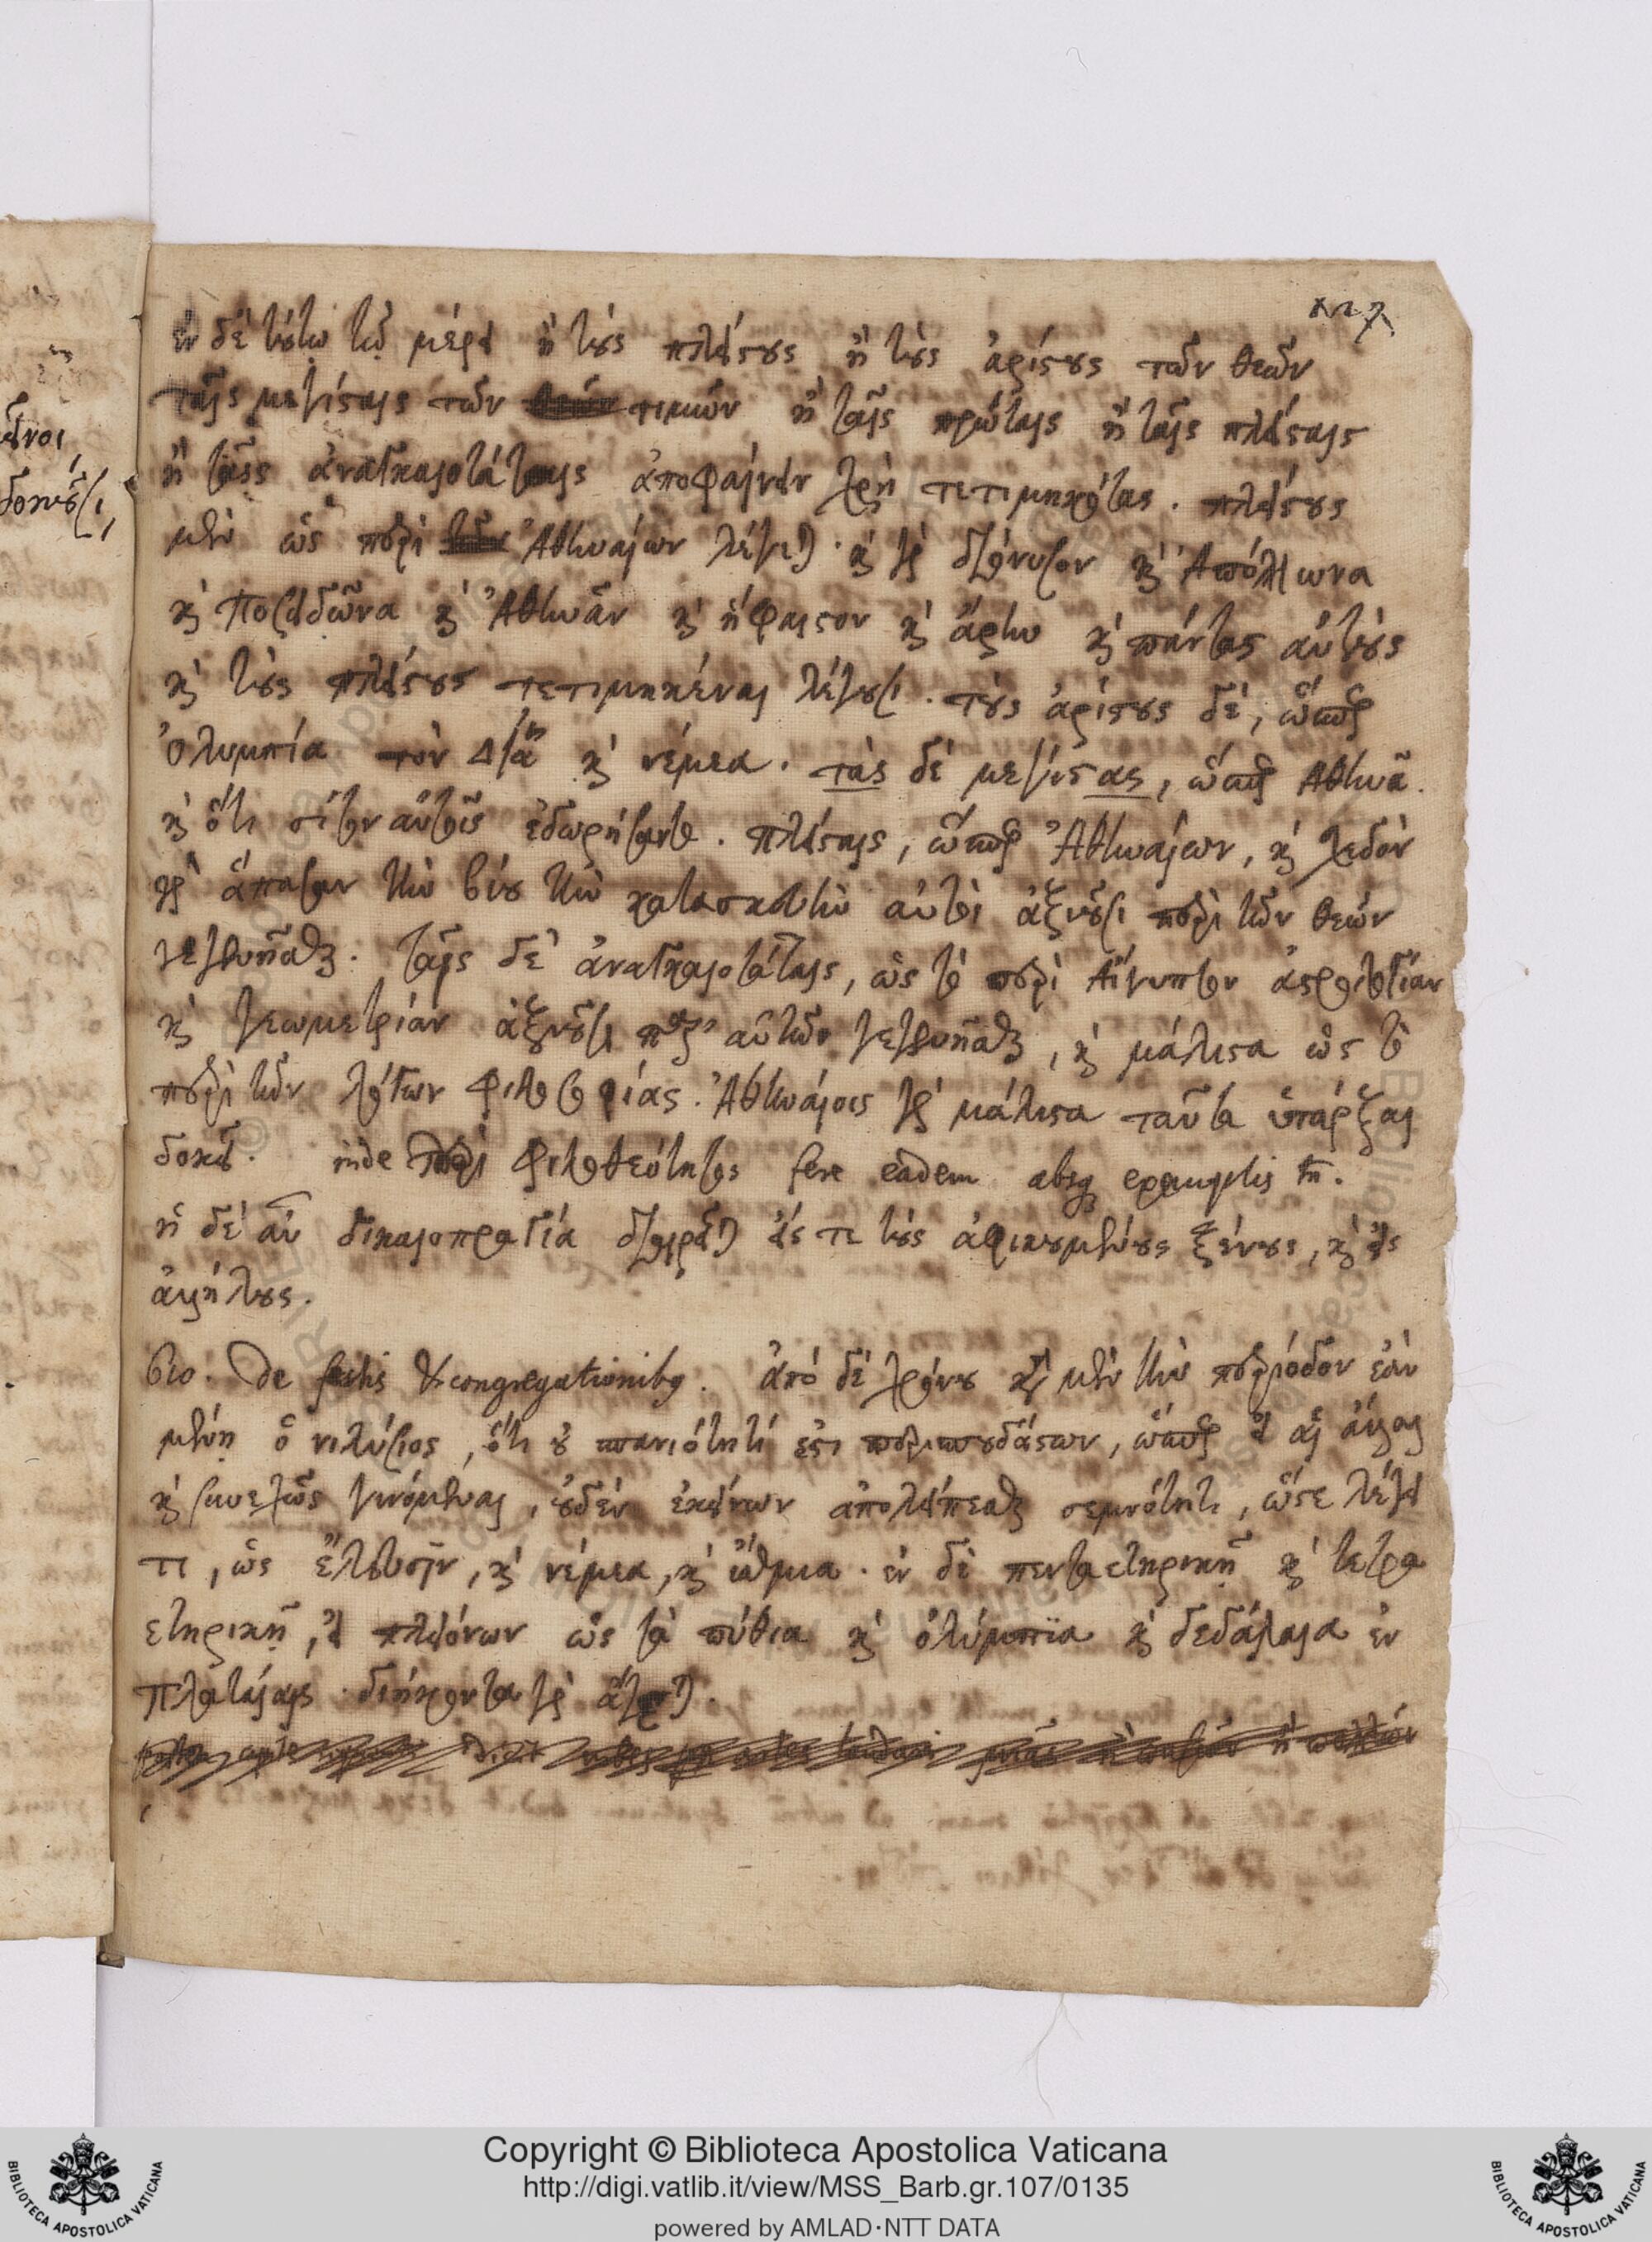 ἐν δὲ τούτῳ τῷ μέρει ἢ τοὺς πλείστους ἢ τοὺς ἀρίστους τῶν θεῶν
ταῖς μεγίσταις τῶν τιμῶν ἢ ταῖς πρώταις ἢ ταῖς πλείσταις
ἢ ταῖς ἀναγκαιοτάταις ἀποφαίνειν χρὴ τετιμηκότας. πλείστους
μὲν ὡς περὶ Ἀθηναίων λέγεται· καὶ γὰρ διόνυσον καὶ Ἀπόλλωνα
καὶ Ποσειδῶνα καὶ Ἀθηνᾶν καὶ ἥφαιστον καὶ ἄρην καὶ πάντας αὐτοὺς
καὶ τοὺς πλείστους τετιμηκέναι λέγουσι. τοὺς ἀρίστους δέ, ὥσπερ
Ὀλυμπία τὸν Δία καὶ νέμεα. τὰς δὲ μεγίστας, ὥσπερ Ἀθηνᾶ.
καὶ ὅτι σῖτον αὐτοῖς ἐδωρήσαντο. πλείσταις, ὥσπερ Ἀθηναίων, καὶ σχεδὸν
γὰρ ἅπασαν τὴν βίου τὴν κατασκευὴν αὐτοὶ ἀξιοῦσι περὶ τῶν θεῶν
γεγενῆσθαι. ταῖς δὲ ἀναγκαιοτάταις, ὡς τὸ περὶ Αἴγυπτον ἀστρολογίαν
καὶ γεωμετρίαν ἀξιοῦσι παρ' αὐτῶν γεγενῆσθαι, καὶ μάλιστα ὡς τὸ
περὶ τῶν λόγων φιλοσοφίας. Ἀθηναίοις γὰρ μάλιστα ταῦτα ὑπάρξαι
δοκεῖ. inde περὶ φιλοθεότητος fere eadem absq exemplis tn.
ἡ δὲ αὖ δικαιοπραγία διαιρεῖται εἴς τε τοὺς ἀφικουμένους ξένους, καὶ εἰς
ἀλλήλους.
610. De festis & congregationibq. ἀπὸ δὲ χρόνου κατὰ μὲν τὴν περίοδον ἐὰν
μὲν ᾖ ὁ νιλύσιος, ὅτι οὐ σπανιότητί ἐστι περισπουδάστων, ὥσπερ εἰ αἱ ἄλλαι
καὶ συνεχῶς γινόμεναι, οὐδὲν ἐκείνων ἀπολείπεσθαι σεμνότητι, ὥστε λέγει
τι, ὡς ἐλευσῖν, καὶ νέμεα, καὶ ἴσθμια. ἐν δὲ πενταετηρικῇ καὶ τετρα
ετηρικῇ, ἢ πλειόνων ὡς τὰ πύθια καὶ ὀλύμπια καὶ δεδάλαια ἐν
πλαταίαις. διήκοντα γὰρ ἄγεται.
Copyright © Biblioteca Apostolica Vaticana
http://digi.vatlib.it/view/MSS_Barb.gr.107/0135
powered by AMLAD·NTT DATA
BIBLIOTECA APOSTOLICA VATICANA
BIBLIOTECA APOSTOLICA VATICANA